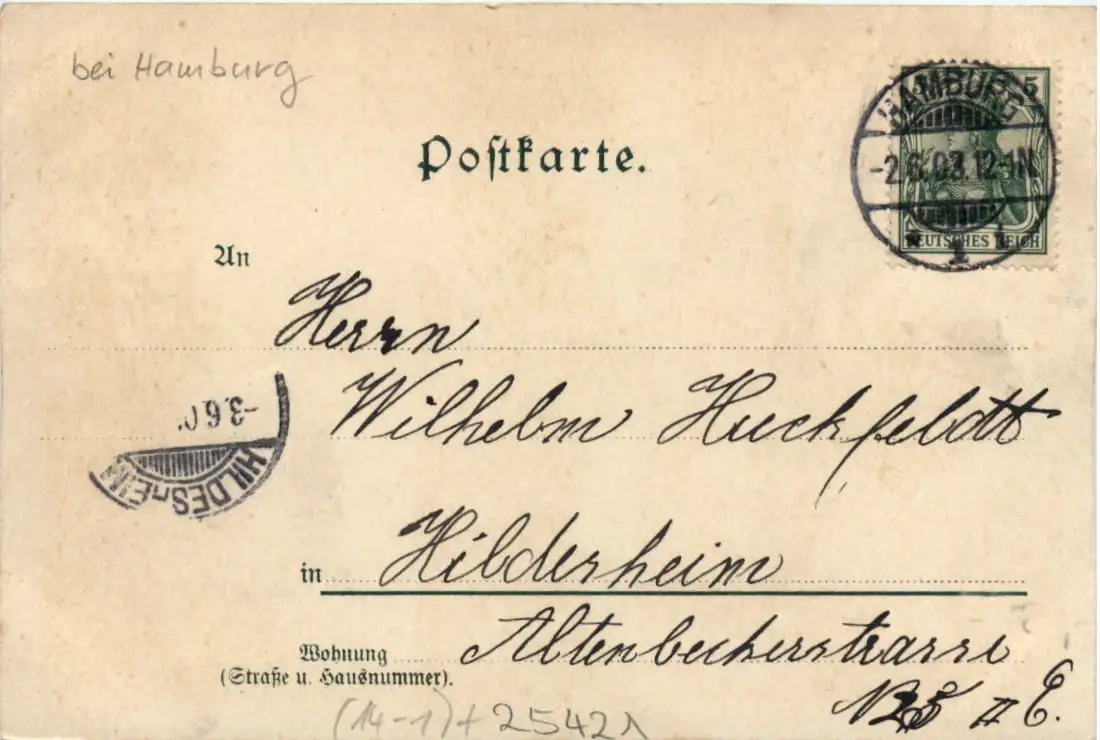 bei Hamburg
5
HAMBURG
-2.6.03.12-1N
* 1 i.
DEUTSCHES REICH
Postkarte.
An
Herrn
Wilhelm Huckfeldt
-3.6.0
HILDESHEIM
in Hildesheim
Wohnung Altenbeckerstrasse
(Straße u. Hausnummer).
II E.
(14-1)+25421